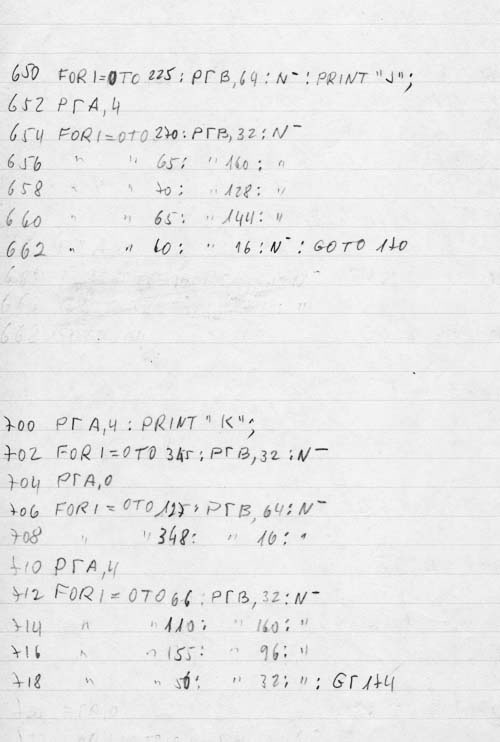 650 FOR I=0 TO 225: PГB,64: N⁻: PRINT "J";
652 PГA,4
654 FOR I=0 TO 270: PГB,32: N⁻
656 " " 65: " 160: "
658 " " 70: " 128: "
660 " " 65: " 144: "
662 " " 60: " 16: N⁻: GOTO 170
700 PГA,4: PRINT "K";
702 FOR I=0 TO 345: PГB,32: N⁻
704 PГA,0
706 FOR I=0 TO 127: PГB,64: N⁻
708 " " 348: " 16: "
710 PГA,4
712 FOR I=0 TO 66: PГB,32: N⁻
714 " " 110: " 160: "
716 " " 155: " 96: "
718 " " 56: " 32: ": GГ174